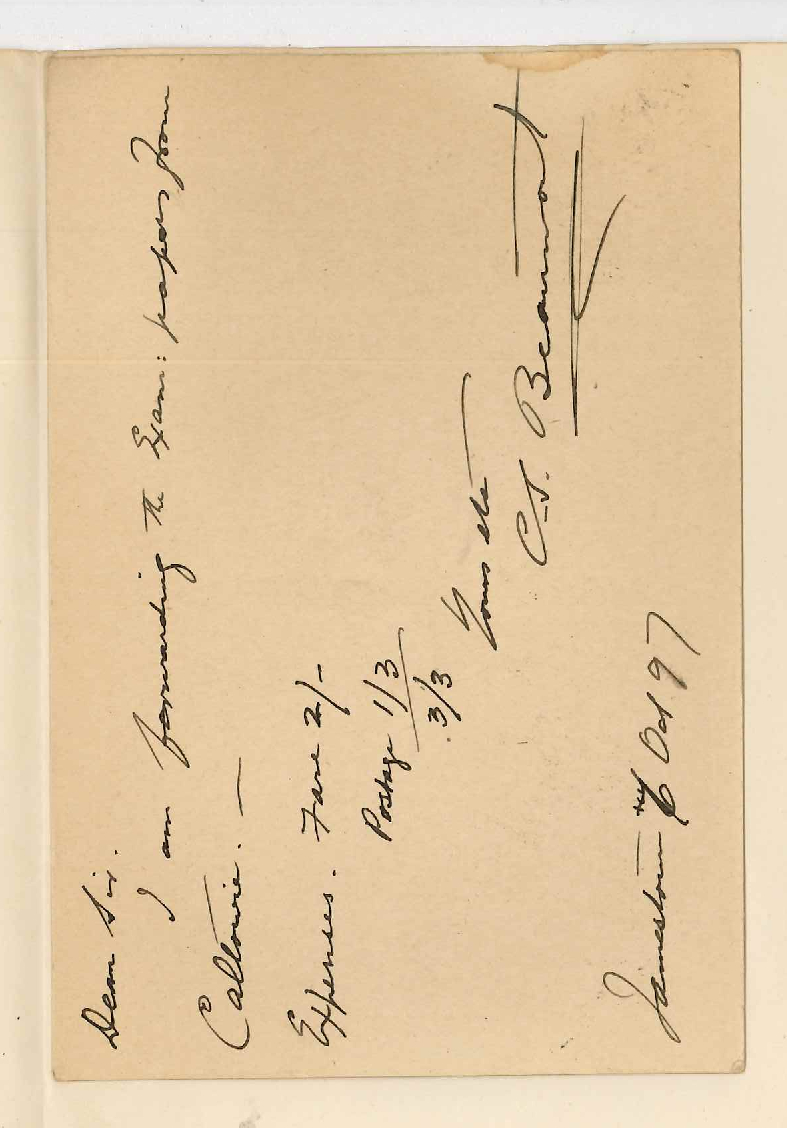 Dear Sir.
I am forwarding the Exam: papers from
Caltowie. —
Expenses. Fare 2/-
Postage 1/3
3/3
Yours etc
C.S. Beaumont
Jamestown Oct 97